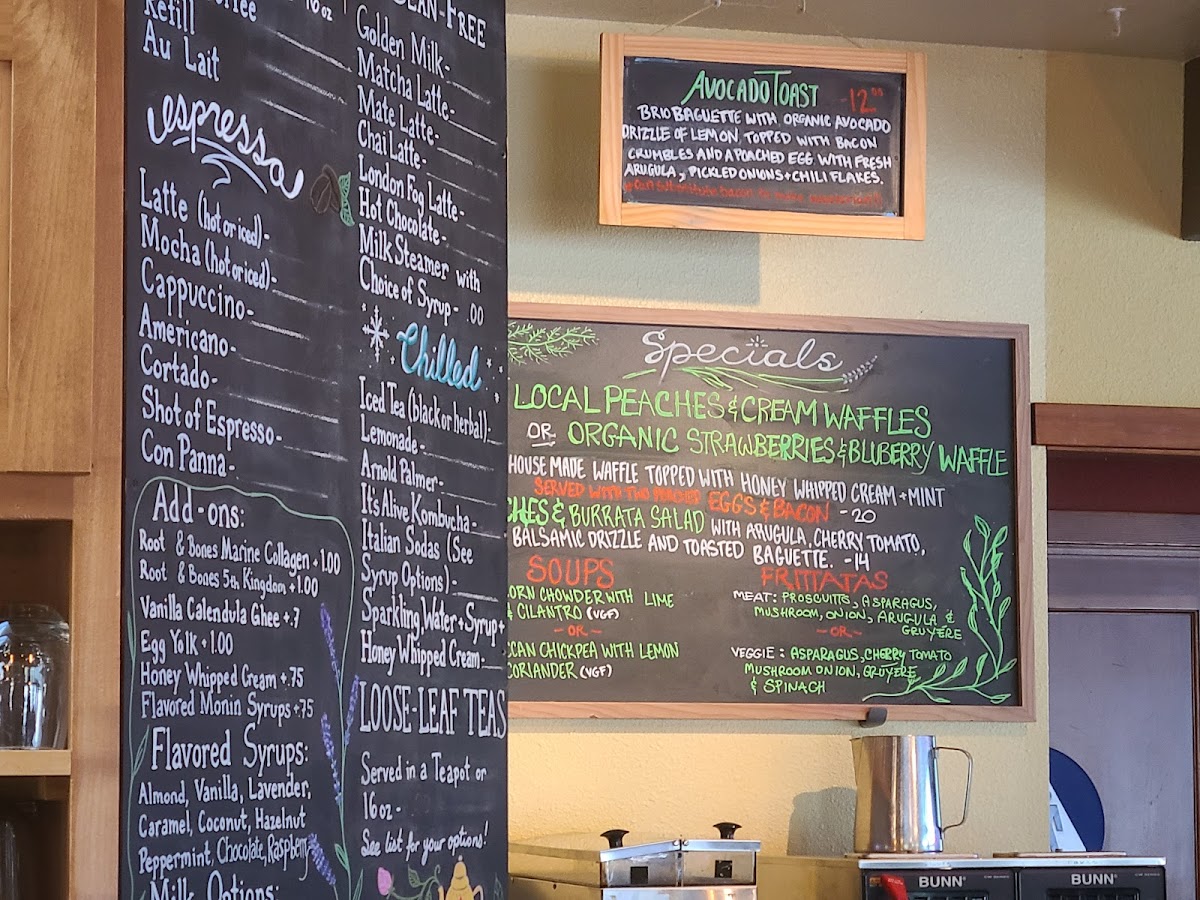 16oz
Refill
Au Lait
espresso
Latte (hot or iced)-
Mocha (hot or iced)-
Cappuccino-
Americano-
Cortado-
Shot of Espresso-
Con Panna-
Add-ons:
Root & Bones Marine Collagen +1.00
Root & Bones 5th Kingdom +1.00
Vanilla Calendula Ghee +.7
Egg Yolk +1.00
Honey Whipped Cream +.75
Flavored Monin Syrups +.75
Flavored Syrups:
Almond, Vanilla, Lavender,
Caramel, Coconut, Hazelnut
Peppermint, Chocolate, Raspberry
Milk Options:
-Free
Golden Milk-
Matcha Latte-
Mate Latte-
Chai Latte-
London Fog Latte-
Hot Chocolate-
Milk Steamer with
Choice of Syrup- .00
Chilled
Iced Tea (black or herbal)-
Lemonade-
Arnold Palmer-
It's Alive Kombucha-
Italian Sodas (See
Syrup Options)-
Sparkling Water + Syrup +
Honey Whipped Cream-
LOOSE-LEAF TEAS
Served in a Teapot or
16oz-
See list for your options!
AVOCADO TOAST -12.00
BRIO BAGUETTE WITH ORGANIC AVOCADO
DRIZZLE OF LEMON TOPPED WITH BACON
CRUMBLES AND A POACHED EGG WITH FRESH
ARUGULA, PICKLED ONIONS + CHILI FLAKES.
Specials
LOCAL PEACHES & CREAM WAFFLES
OR ORGANIC STRAWBERRIES & BLUBERRY WAFFLE
HOUSE MADE WAFFLE TOPPED WITH HONEY WHIPPED CREAM + MINT
SERVED WITH TWO POACHED EGGS & BACON -20
CHES & BURRATA SALAD WITH ARUGULA, CHERRY TOMATO,
BALSAMIC DRIZZLE AND TOASTED BAGUETTE. -14
SOUPS
ORN CHOWDER WITH LIME
& CILANTRO (VGF)
-OR-
CAN CHICKPEA WITH LEMON
CORIANDER (VGF)
FRITTATAS
MEAT: PROSCUITTO, ASPARAGUS,
MUSHROOM, ONION, ARUGULA &
GRUYÉRE
-OR-
VEGGIE: ASPARAGUS, CHERRY TOMATO
MUSHROOM ONION, GRUYERE
& SPINACH
BUNN
BUNN